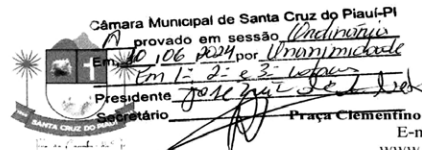 Câmara Municipal de Santa Cruz do Piauí-PI
Aprovado em sessão Ordinária
Em, 10 ,06 2024 por Unanimidade
Em 1ª 2ª e 3ª
Presidente José
Secretário
SANTA CRUZ DO
Praça Clementino
E-m
www